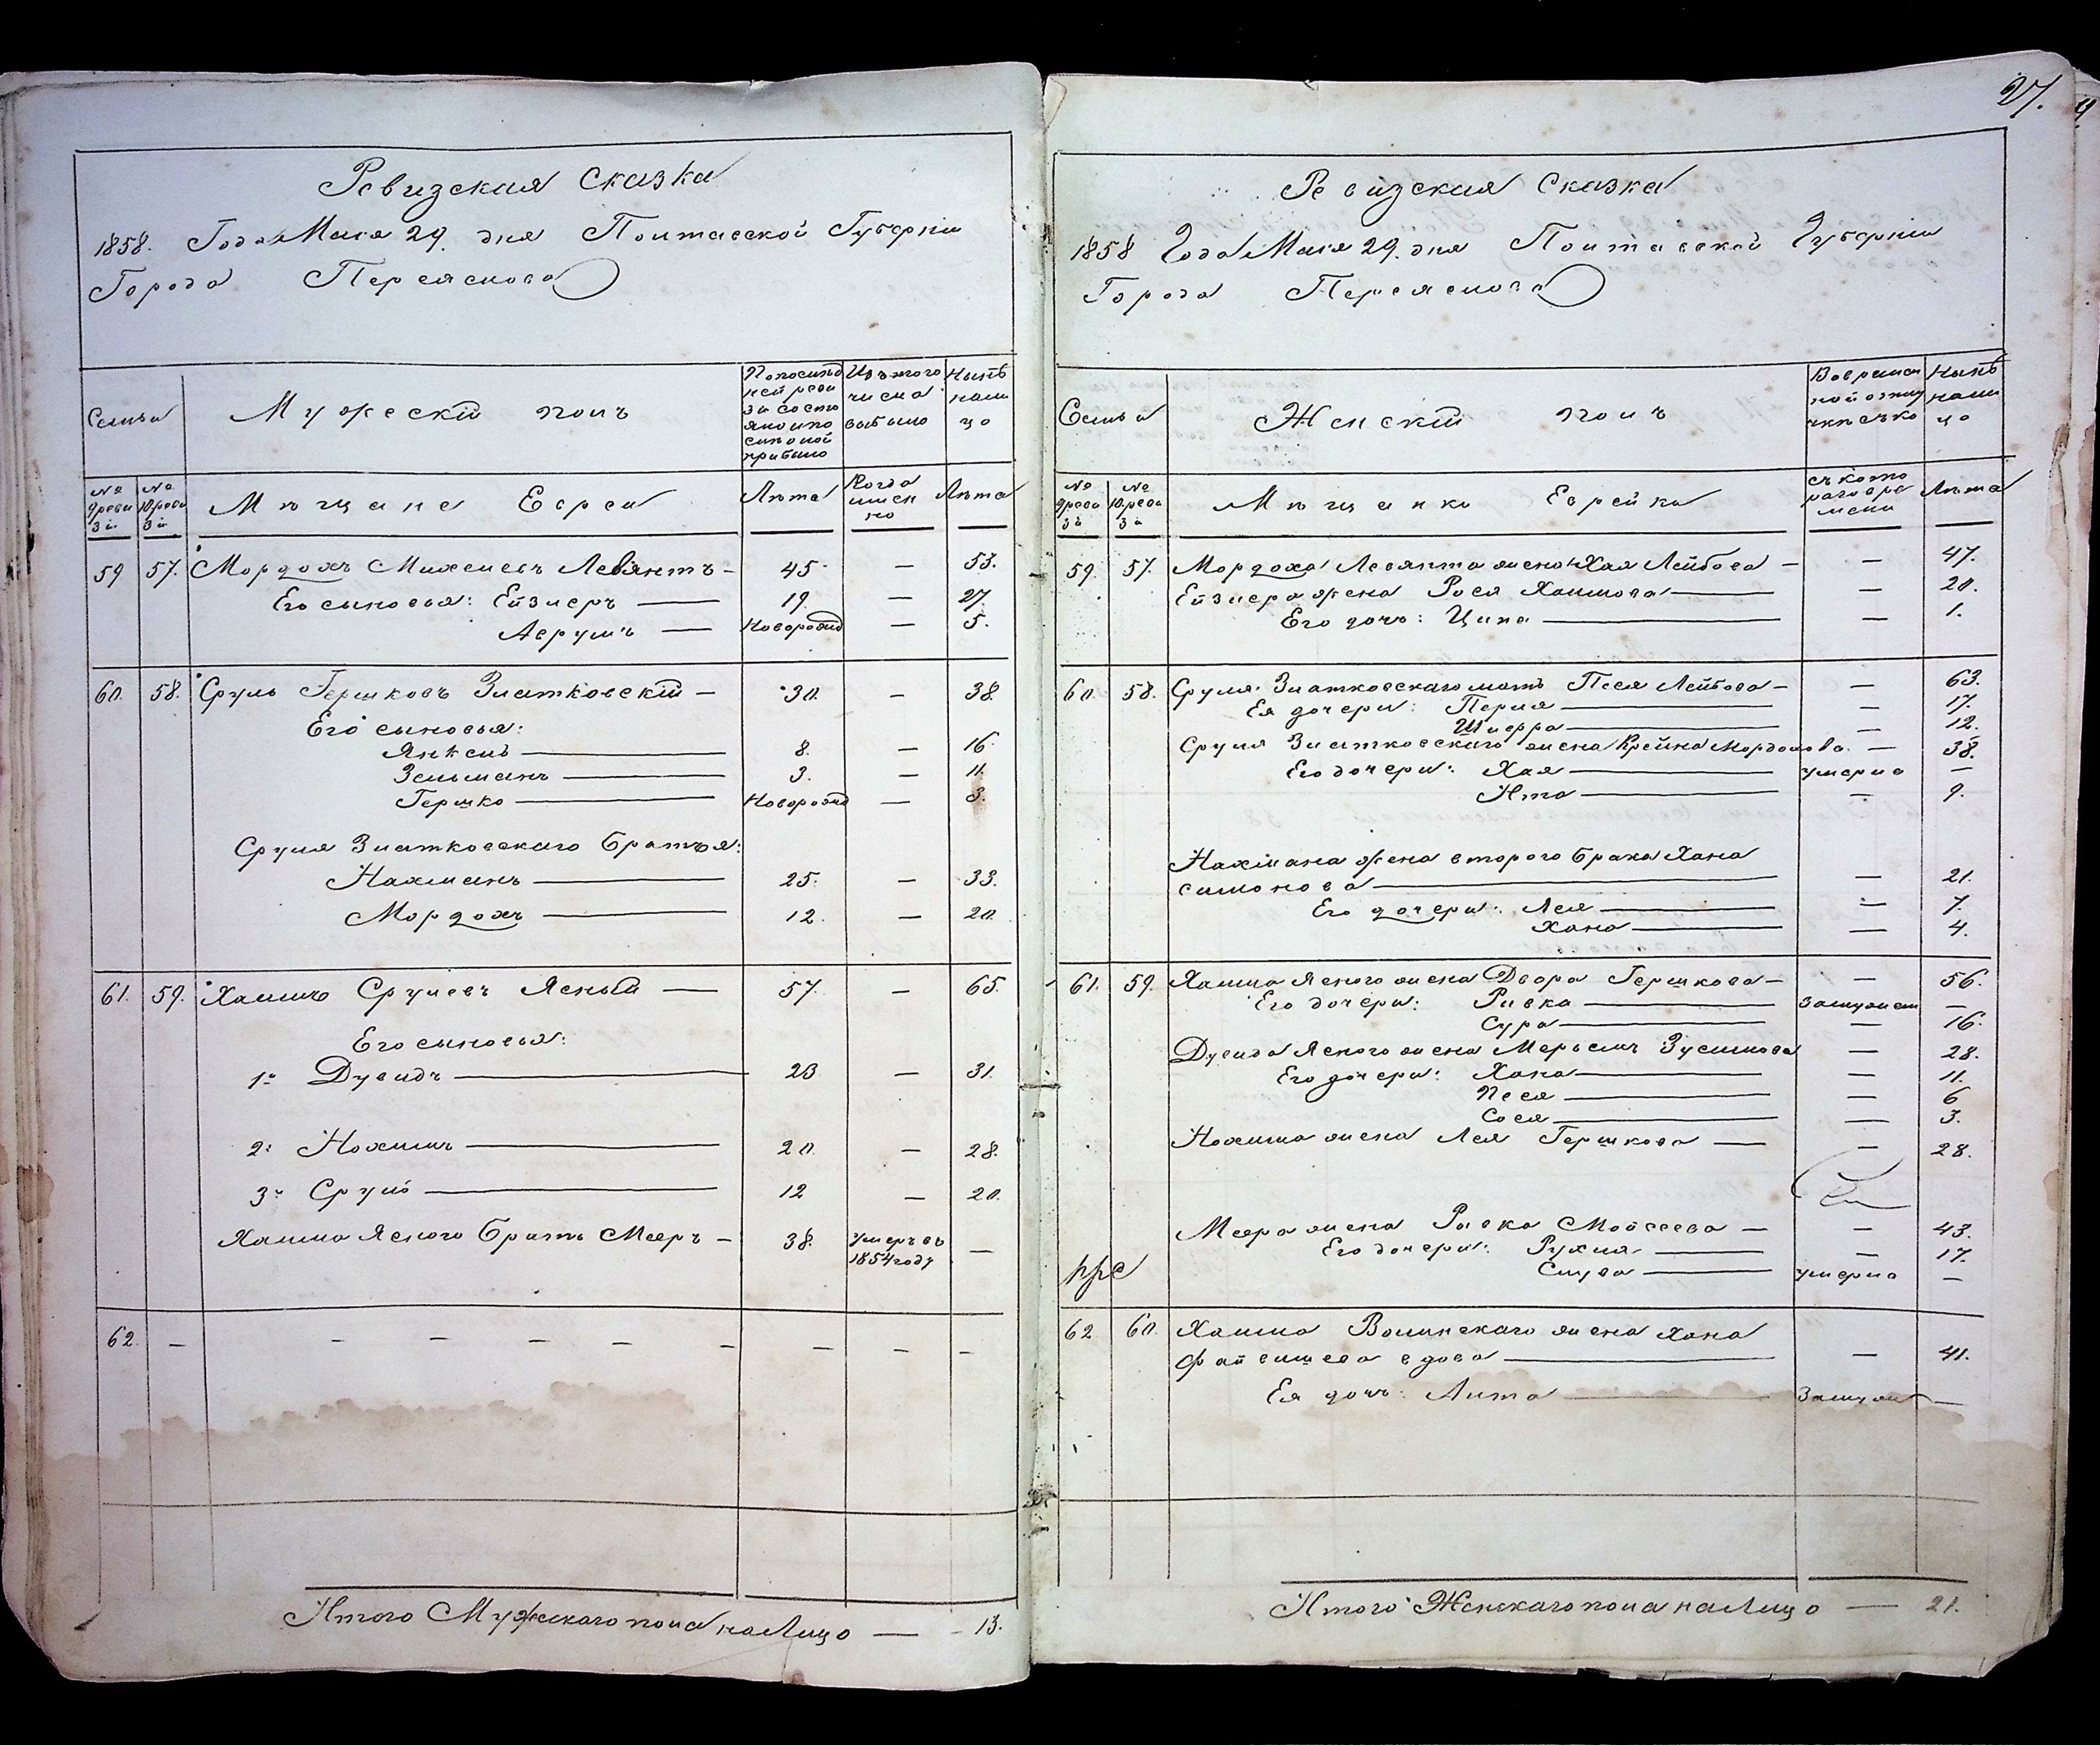 27.
Ревизская Сказка
1858. Года Мая 29. дня Полтавской Губерніи
Города Переяслова
Семьи
Мужескій полъ
По послѣд
ней реви
зіи состо
яло и по
слѣ оной
прибыло
Изъ того
числа
выбыло
Нынѣ
нали
цо
№
9 реви
зіи
№
10 реви
зіи
Мѣщане Евреи
Лѣта
Когда
имен
но
Лѣта
59 57. Мордохъ Михелевъ Левянтъ - 45 — 53.
Его сыновья: Ейзлеръ — 19. — 27
Аврумъ — Новорожд — 5.
60. 58. Сруль Гершковъ Златковскій - 30. - 38.
Его сыновья:
Янкель — 8. — 16.
Зельманъ — 3. — 11.
Гершко — Новорожд — 3.
Сруля Златковскаго братья:
Нахманъ — 25. — 33.
Мордохъ — 12. — 20.
61. 59. Хаимъ Срулевъ Ясный — 57. - 65.
Его сыновья:
1й Дувидъ — 23 — 31.
2й Нохимъ — 20. — 28.
3й Сруль — 12 — 20.
Хаима Ясного братъ Меръ - 38. умеръ въ
1854 году —
62. — — — — — — — — —
Итого Мужескаго пола на лицо — 13.
Ревизская Сказка
1858 Года Мая 29. дня Полтавской Губерніи
Города Переяслова
Семьи
Женскій полъ
Во времен
ной отлу
чкѣ
Нынѣ
нали
цо
№
9 реви
зіи
№
10 реви
зіи
Мѣщанки Еврейки
съ кото
раго вре
мени
Лѣта
59. 57. Мордоха Левянта жена Хая Лейбова — — 47.
Ейзлера жена Рося Хаимова — — 20.
Его дочь: Ципа — — 1.
60 58. Сруля Златковскаго мать Песя Лейбова — — 63.
Ея дочери: Перля — — 17.
Шифра — — 12.
Сруля Златковскаго жена Крейна Мордохова — 38.
Его дочери: Хая — умерла —
Ита — — 9.
Нахмана жена второго брака Хана
Симонова — — 21.
Его дочери: Лея — — 7.
Хана — — 4.
61. 59. Хаима Ясного жена Двора Гершкова — — 56.
Его дочери: Ривка — замужем —
Сура — — 16.
Дувида Ясного жена Мерьемъ Зусимова — 28.
Его дочери: Хана — — 11.
Песя — — 6
Сося — — 3.
Нохима жена Лея Гершкова — — 28.
Мера жена Ривка Мойсеева — — 43.
Его дочери: Рухля — — 17.
Слува — умерла —
62 60. Хаима Волинскаго жена Хана
Файвишева вдова — — 41.
Ея дочь: Лита — замуж —
Итого Женскаго пола на лицо — 21.